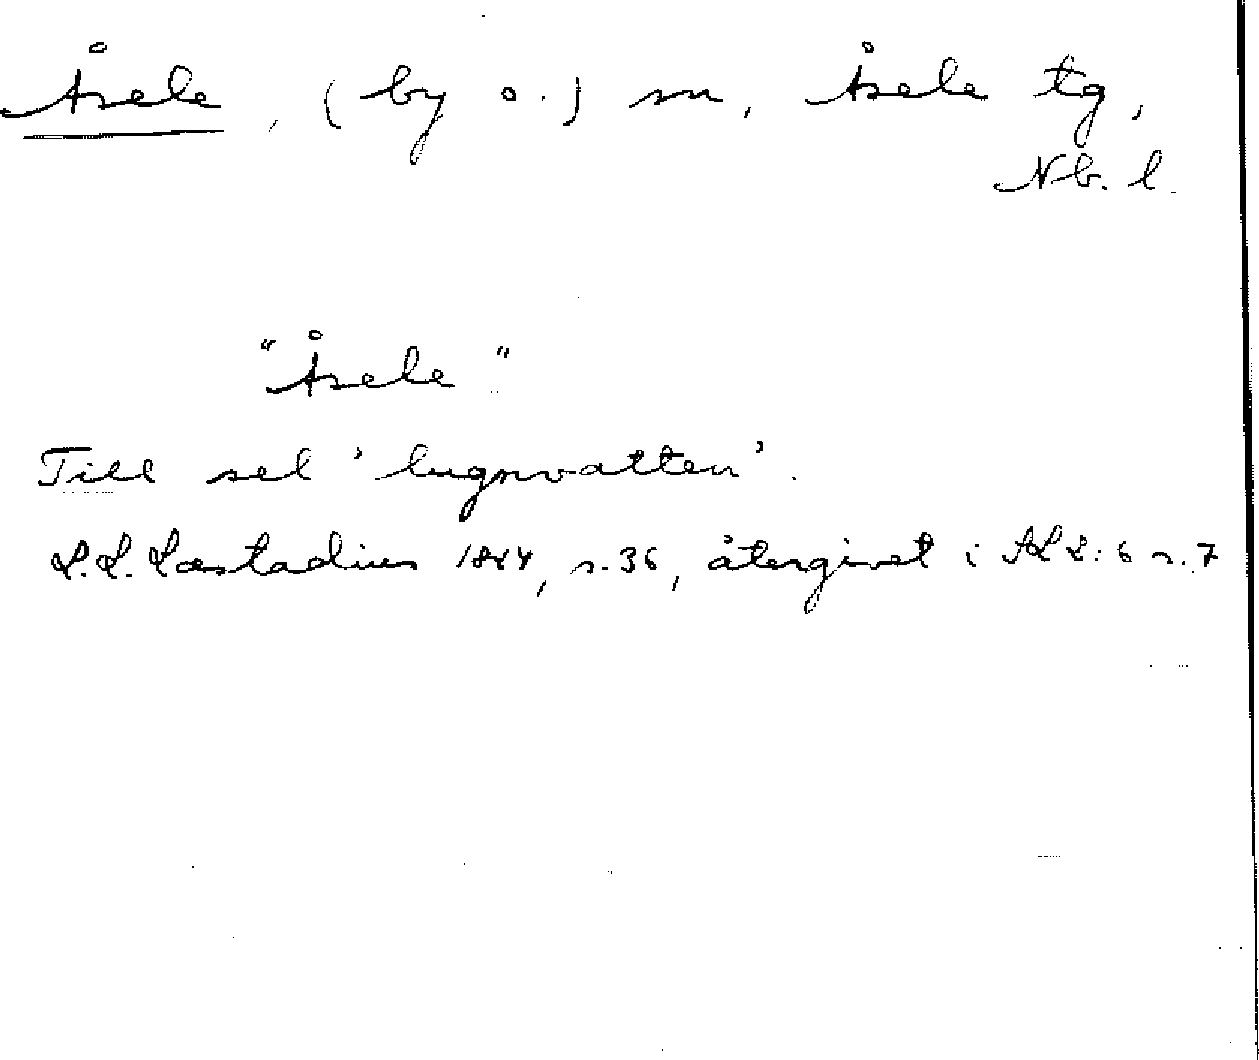 Åsele, (by o.) sn, Åsele tg,
Nb. l.
"Åsele"
Till sel 'lugnvatten'.
L.L. Læstadius 1824, s. 36, återgivet i AL 2:6 s. 7